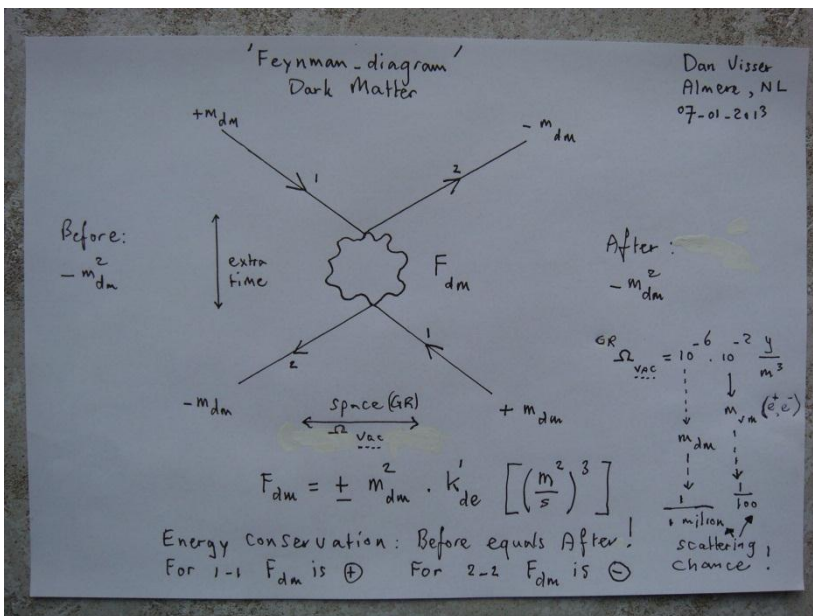 'Feynman_diagram'
Dark Matter
Dan Visser
Almere, NL
07-01-2013
+m_dm
- m_dm
1
2
Before:
- m²_dm
extra
time
F_dm
After:
- m²_dm
2
1
-m_dm
+ m_dm
space (GR)
Ω_vac
GR Ω_VAC = 10^-6 . 10^-2 y/m³
m_vm (e+,e-)
m_dm
1/1 million
1/100
scattering
chance!
F_dm = ± m²_dm . k'_de [(m²/s)³]
Energy Conservation: Before equals After!
For 1-1 F_dm is ⊕ For 2-2 F_dm is ⊖